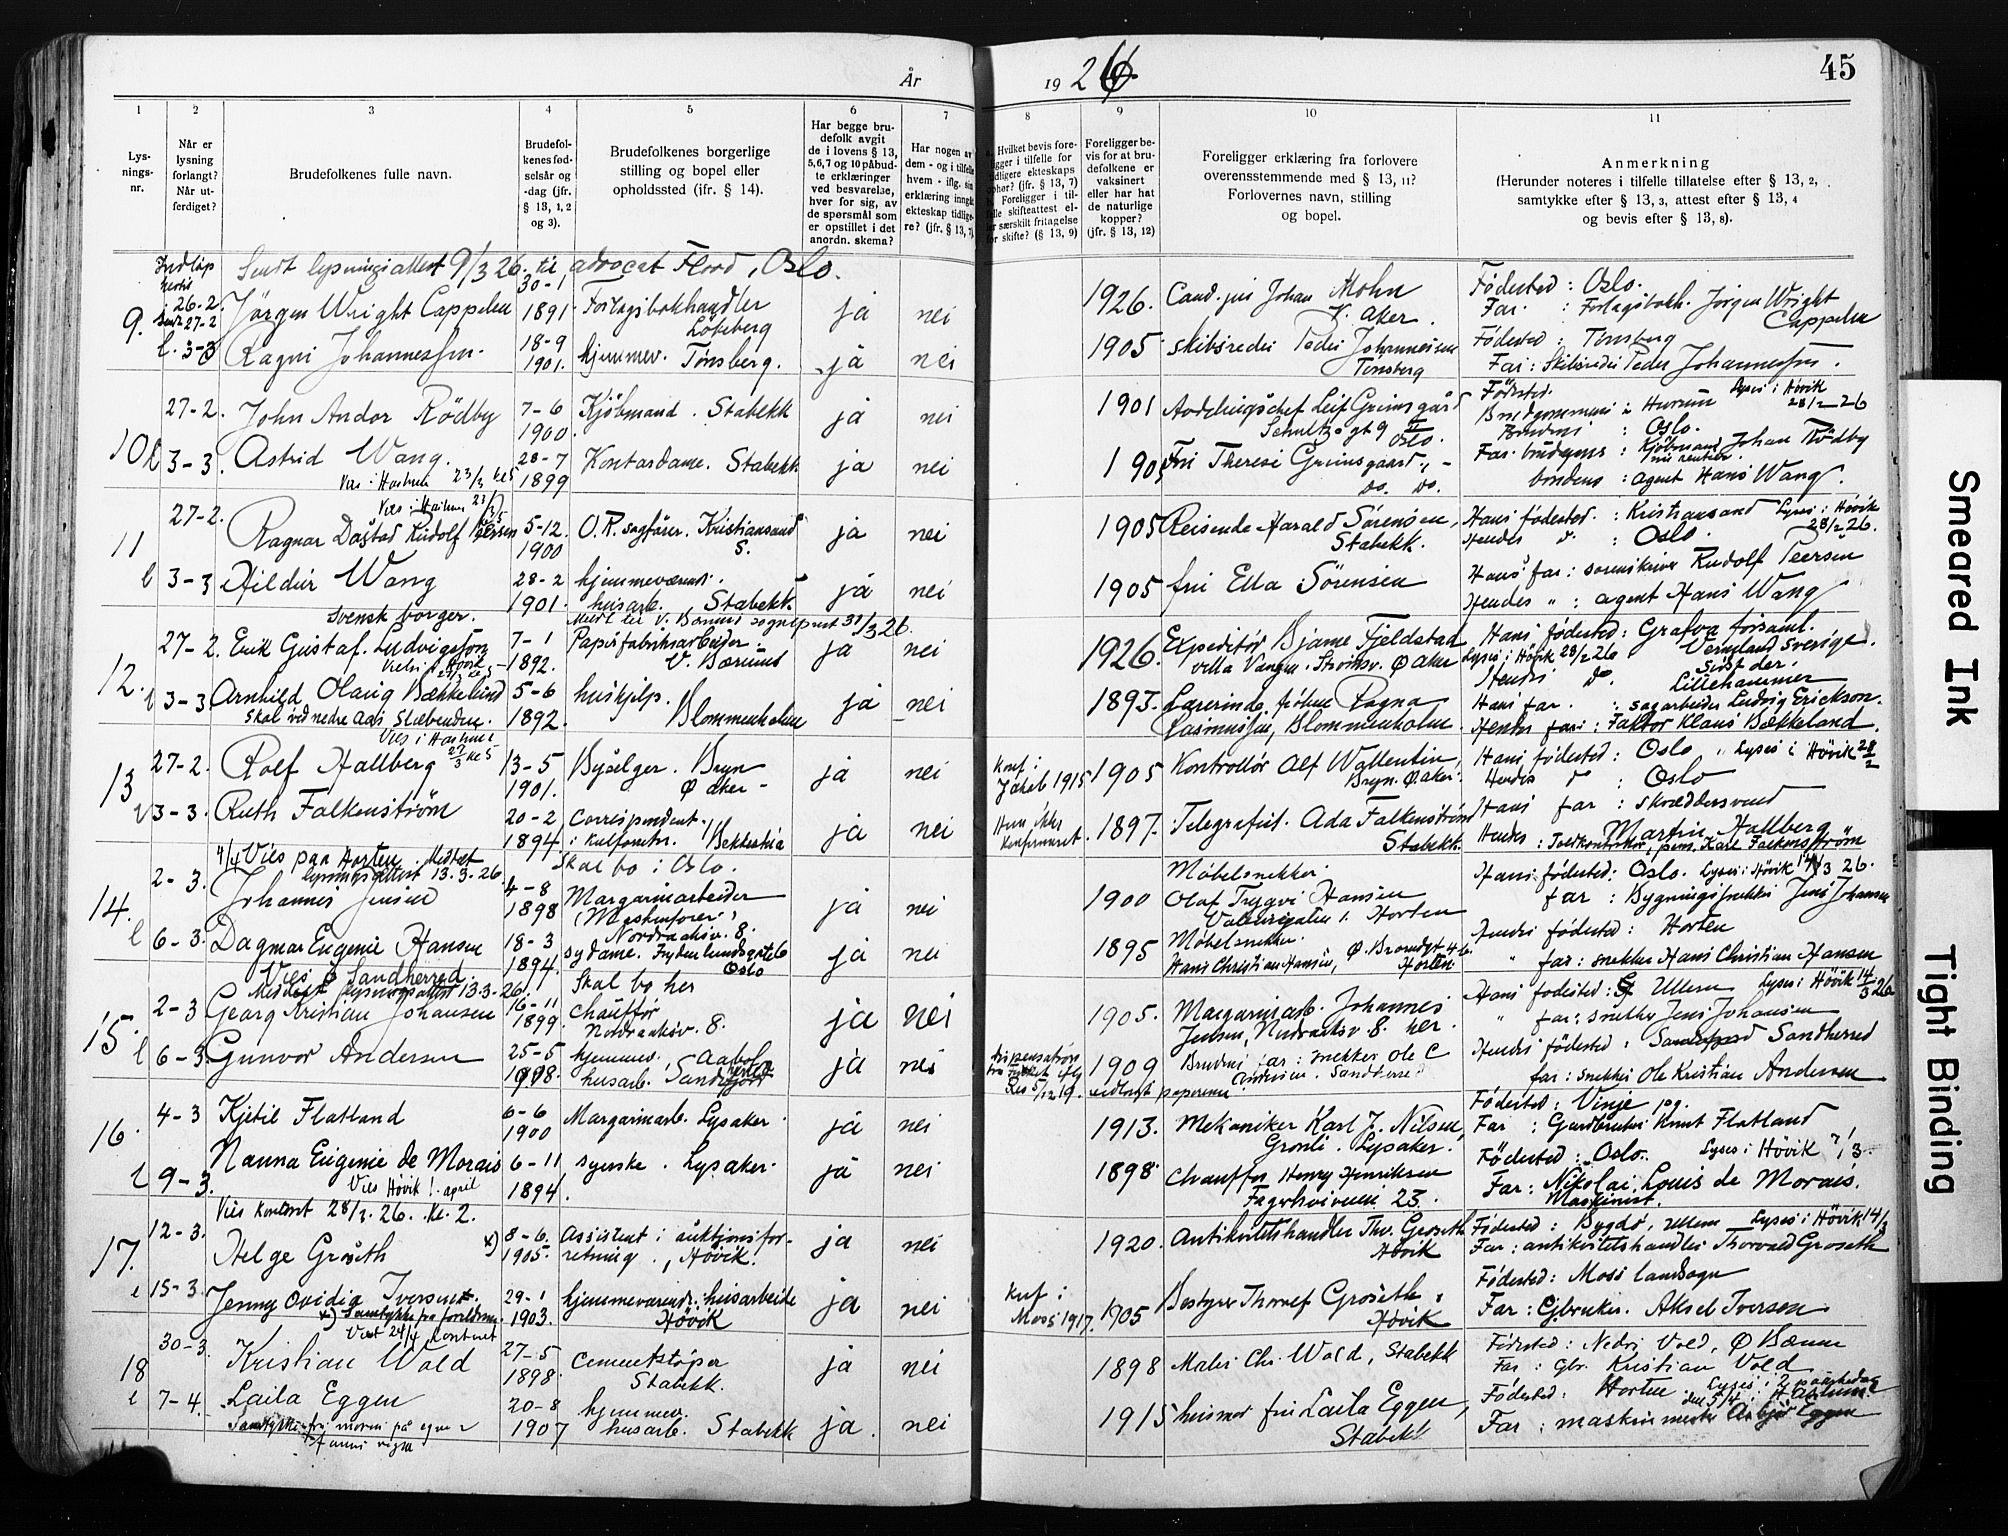 År
19 26
45
1
2
3
4
5
6
7
8
9
10
11
Lys-
nings-
nr.
Når er
lysning
forlangt?
Når ut-
ferdiget?
Brudefolkenes fulle navn.
Brudefol-
kenes fød-
selsår og
-dag (jfr.
§ 13, 1, 2
og 3).
Brudefolkenes borgerlige
stilling og bopel eller
opholdssted (jfr. § 14).
Har begge bru-
defolk avgit
de i lovens § 13,
5, 6, 7 og 10 påbud-
te erklæringer
ved besvarelse,
hver for sig, av
de spørsmål som
er opstillet i det
anordn. skema?
Har nogen av
dem - og i tilfelle
hvem - iflg. sin
erklæring inngått
ekteskap tidlige-
re? (jfr. § 13, 7)
Hvilket bevis fore-
ligger i tilfelle for
tidligere ekteskaps
ophør? (jfr. § 13, 7)
Foreligger i til-
felle skifteattest el-
ler særskilt fritagelse
for skifte? (§ 13, 9)
Foreligger be-
vis for at bru-
defolkene er
vaksinert
eller har hat
de naturlige
kopper?
(jfr. § 13, 12)
Foreligger erklæring fra forlovere
overensstemmende med § 13, 11?
Forlovernes navn, stilling
og bopel.
Anmerkning
(Herunder noteres i tilfelle tillatelse efter § 13, 2,
samtykke efter § 13, 3, attest efter § 13, 4
og bevis efter § 13, 8).
Sendt lysningsattest 9/3 26. til advocat Flood, Oslo.
9. 26-2. Jörgen Wright Cappelen 30-1 1891 Forlagsbokhandler ja nei 1926. Cand. jur Johan Mohn V. Aker. Fødested: Oslo.
Far: Forlagsbokh. Jörgen Wright Cappelen
l. 3-3 Ragni Johannessen. 18-9 1901. hjemmev. Tønsberg. ja nei 1905 Skibsreder Peder Johannessen Tønsberg Fødested: Tønsberg
Far: Skibsreder Peder Johannessen.
10 27-2. John Andor Rödby 7-6 1900. Kjöbmand. Stabekk ja nei 1901 Avdelingschef Leif Grimsgård Schultzgt 9 II Oslo. Fødested. Lyses i Høvik 28/2 26
Brudgommens: Hurum
Brudens: Oslo.
l 3-3. Astrid Wang. 28-7 1899 Kontordame. Stabekk ja nei 1905 Fru Therese Grimsgaard " - Do. Do. Far: brudgoms: Kjöbmand Johan Rödby
brudens: agent Hans Wang.
Vies i Haslum 23/3 kl 5
11 27-2. Ragnar Dåstad Rudolf Peersen 5-12. 1900 O.R. sagfører. Kristiansand S. ja nei 1905 Reisende Harald Sørensen, Stabekk. Hans fødested: Kristiansand Lyses i Høvik 28/2 26.
Hendes d: Oslo.
l 3-3 Hildur Wang 28-2 1901. hjemmeværende husarb. Stabekk. ja nei 1905 fru Ella Sörensen Hans far: sorenskriver Rudolf Peersen
Hendes " : agent Hans Wang
svensk borger.
12. 27-2. Erik Gustaf. Ludvigsson 7-1 1892. Papirfabrikarbeider V. Bærum ja nei 1926. Expeditör Bjarne Fjeldstad villa Vangen. Strömsv. Ø Aker Hans fødested: Grafva forsaml. Vermland Sverige.
Lyses i Høvik 28/2 26
Hendes do. Lillehammer
l 3-3. Arnhild Olaug Bækkelund 5-6 1892. hushjelp. Blommenholm ja nei 1893. Lærerinde, frøken Ragna Rasmussen, Blommenholm Hans far: sagarbeider Ludvig Erickson.
Hendes far: Faktor Klaus Bækkeland
Vies i Haslum 27/3 kl 5
13 27-2. Rolf Hallberg 13-5 1901. Byselger. Bryn Ø Aker - ja nei Konf i Jakob 1915 1905 Kontrollör Alf Wallentin, Bryn. Ø. aker. Hans fødested: Oslo " Lyses i Høvik 28/2
Hendes d: Oslo
3-3. Ruth Falkenström 20-2 1894 Correspondent. Bekkestua ja nei Hun ikke konfirmeret. 1897. Telegrafist. Ada Falkenström Stabekk Hans far: Skræddersvend Martin Hallberg
Hendes: Toldkontrollør, pens. Karl Falkenström
4/4 Vies paa Horten. Meddelt lysningsattest 13.3.26 Skal bo i Oslo.
14. 2-3. Johannes Jensen 4-8 1898 Margarinarbeider Nordraaksv. 8. ja nei 1900 Möbelsnekker Olaf Trygve Hansen Horten Hans fødested: Oslo. Lyses i Høvik 14/3 26.
far: Bygningssnekker Jens Johansen
l 6-3. Dagmar Eugenie Hansen 18-3 1894. sydame. Frydenlundsgate 6 Oslo ja nei 1895 Möbelsnekker. Hans Christian Hansen, Ø. Brandgt. 46 Horten Hendes fødested: Horten
" far: snekker Hans Christian Hansen
Vies i Sandherred
Meddelt lysningsattest 13.3-26. Skal bo her
15. 2-3 Georg Kristian Johansen 16-11 1899. Chauffør Nordraaksv. 8. ja nei 1905. Margarinarb. Johannes Jensen, Nordraaksv 8. her. Hans fødested: Ullern Lyses i Høvik 14/3 26
" far: snekker Jens Johansen
l 6-3. Gunvor Andersen 25-5 1908. hjemmev. husarb. Sandefjord ja nei 1909 Brudens far: snekker Ole C Andersen. Sandherred Hendes fødested: Sandherred
far: snekker Ole Kristian Andersen
16. 4-3 Kjetil Flatland 6-6 1900 Margarinarb. Lysaker. ja nei 1913. Mekaniker Karl J. Nilsen, Lysaker. Fødested: Vinje pg.
Far: Gardbruker Knut Flatland
l 9-3. Nanna Eugenie de Morais 6-11 1894. syerske. Lysaker. ja nei 1898. Chauffør Henry Henriksen Fagerhøiveien 23. Fødested: Oslo. Lyses i Høvik 7/3.
Far: Nikolai Louis de Morais. Maskinist.
Vies Høvik 1. april
Vies kontoret 28/3. 26. kl. 2.
17. 12-3. Helge Groseth x) 8-6. 1905. Assistent i auktionsfor- retning, Høvik. ja nei 1920. Antikvitetshandler Thv. Groseth Høvik Fødested: Bygdø, Ullern Lyses i Høvik 14/3
Far: antikvitetshandler Thorvald Groseth
15-3. Jenny Ovidia Iversen. 29-1 1903. hjemmeværende: husarbeide Høvik ja nei Konf i Moss 1917. 1905 Bestyrer Thoralf Groseth, Høvik Fødested: Moss landsogn
Far: Gbruker. Aksel Iversen
x) Samtykke fra foreldrene.
Viet 24/4 Kontoret
18 30-3. Kristian Wold 27-5 1898. Cementstøper Stabekk. ja nei 1898 Maler Chr. Wold, Stabekk Fødested: Nedre Vold, Ø Bærum
Far: Gbr. Kristian Vold
l 7-4. Laila Eggen 20-8 1907 hjemmev. husarb. Stabekk ja. nei 1915 husmor fru Laila Eggen, Stabekk Fødested: Horten Lyses i 2 påskedag Haslum
Far: maskinmester Asbjør Eggen
Samtykke fra moren på egne
Smeared Ink
Tight Binding